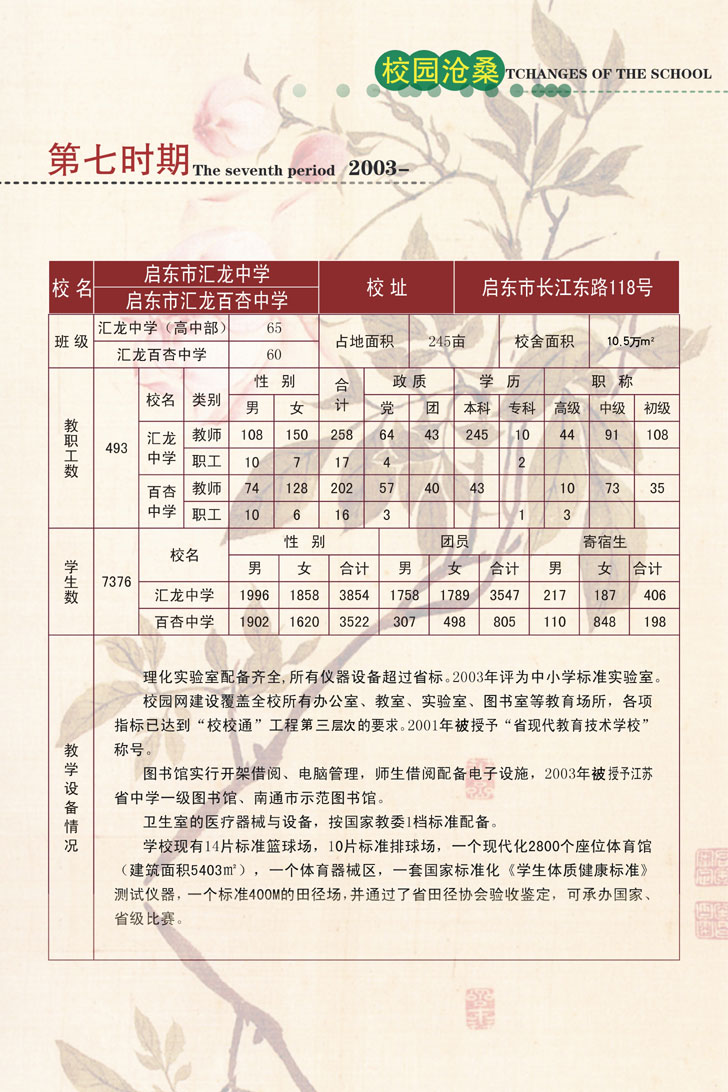 校园沧桑 TCHANGES OF THE SCHOOL
第七时期 The seventh period 2003–
校名 启东市汇龙中学 校址 启东市长江东路118号
启东市汇龙百杏中学
班级 汇龙中学（高中部） 65 占地面积 245亩 校舍面积 10.5万m²
汇龙百杏中学 60
教职工数 493 校名 类别 性别 合计 政质 学历 职称
男 女 党 团 本科 专科 高级 中级 初级
汇龙中学 教师 108 150 258 64 43 245 10 44 91 108
职工 10 7 17 4 2
百杏中学 教师 74 128 202 57 40 43 10 73 35
职工 10 6 16 3 1 3
学生数 7376 校名 性别 团员 寄宿生
男 女 合计 男 女 合计 男 女 合计
汇龙中学 1996 1858 3854 1758 1789 3547 217 187 406
百杏中学 1902 1620 3522 307 498 805 110 848 198
教学设备情况
理化实验室配备齐全,所有仪器设备超过省标。2003年评为中小学标准实验室。
校园网建设覆盖全校所有办公室、教室、实验室、图书室等教育场所，各项
指标已达到“校校通”工程第三层次的要求。2001年被授予“省现代教育技术学校”
称号。
图书馆实行开架借阅、电脑管理，师生借阅配备电子设施，2003年被授予江苏
省中学一级图书馆、南通市示范图书馆。
卫生室的医疗器械与设备，按国家教委1档标准配备。
学校现有14片标准篮球场，10片标准排球场，一个现代化2800个座位体育馆
（建筑面积5403㎡），一个体育器械区，一套国家标准化《学生体质健康标准》
测试仪器，一个标准400M的田径场,并通过了省田径协会验收鉴定，可承办国家、
省级比赛。